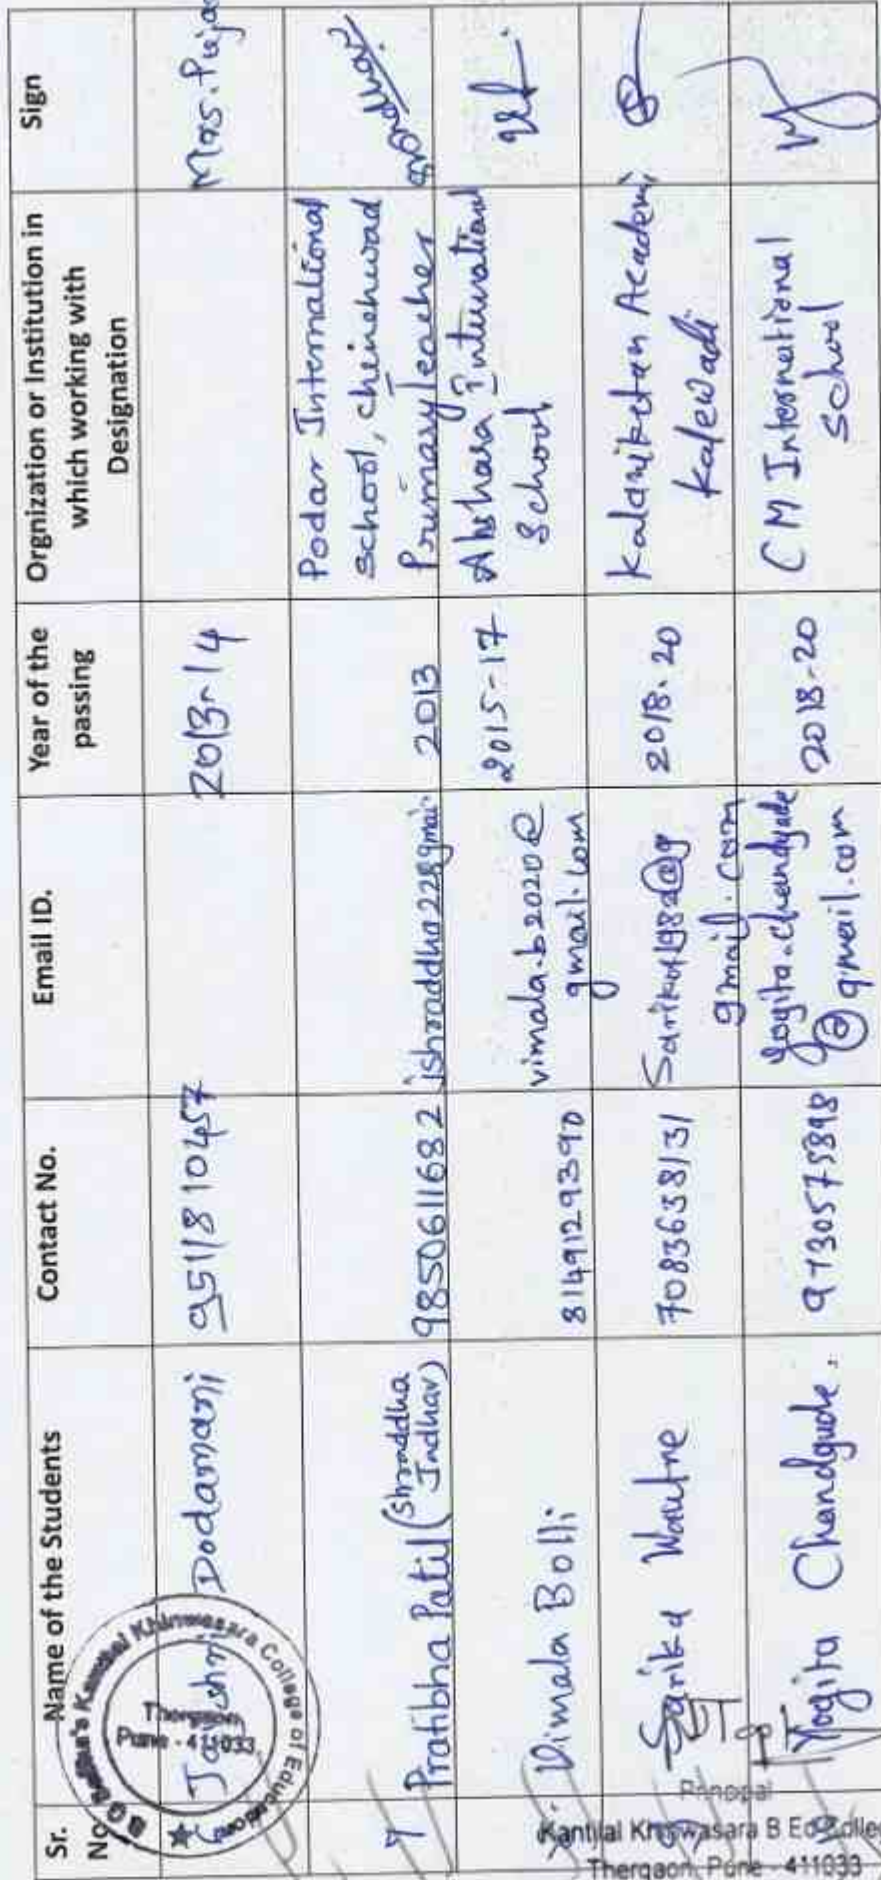 Sr. No
Name of the Students
Contact No.
Email ID.
Year of the passing
Orgnization or Institution in which working with Designation
Sign
6 Jayshri Dodamani
9511810457
2013-14
Mrs. Puja
7 Pratibha Patil (Shraddha Jadhav)
9850611682
ishraddha228gmai.
2013
Podar International
school, chinchwad
Primary Teacher
8. Vimala Bolli
8149129390
vimala.b2020@
gmail.com
2015-17
Akshara International
School
9 Sarika
7083638131
gmail.com
2018.20
Kalaniketan Academi
Kalewadi
Yogita Chandgude.
9730575898
yogita.chandgude
@gmail.com
2018-20
CM International
School
B G Kantilal Khinwasara College of Education
Thergaon
Pune - 411033
Principal
Kantilal Khinwasara B Ed Colleg
Thergaon, Pune - 411033